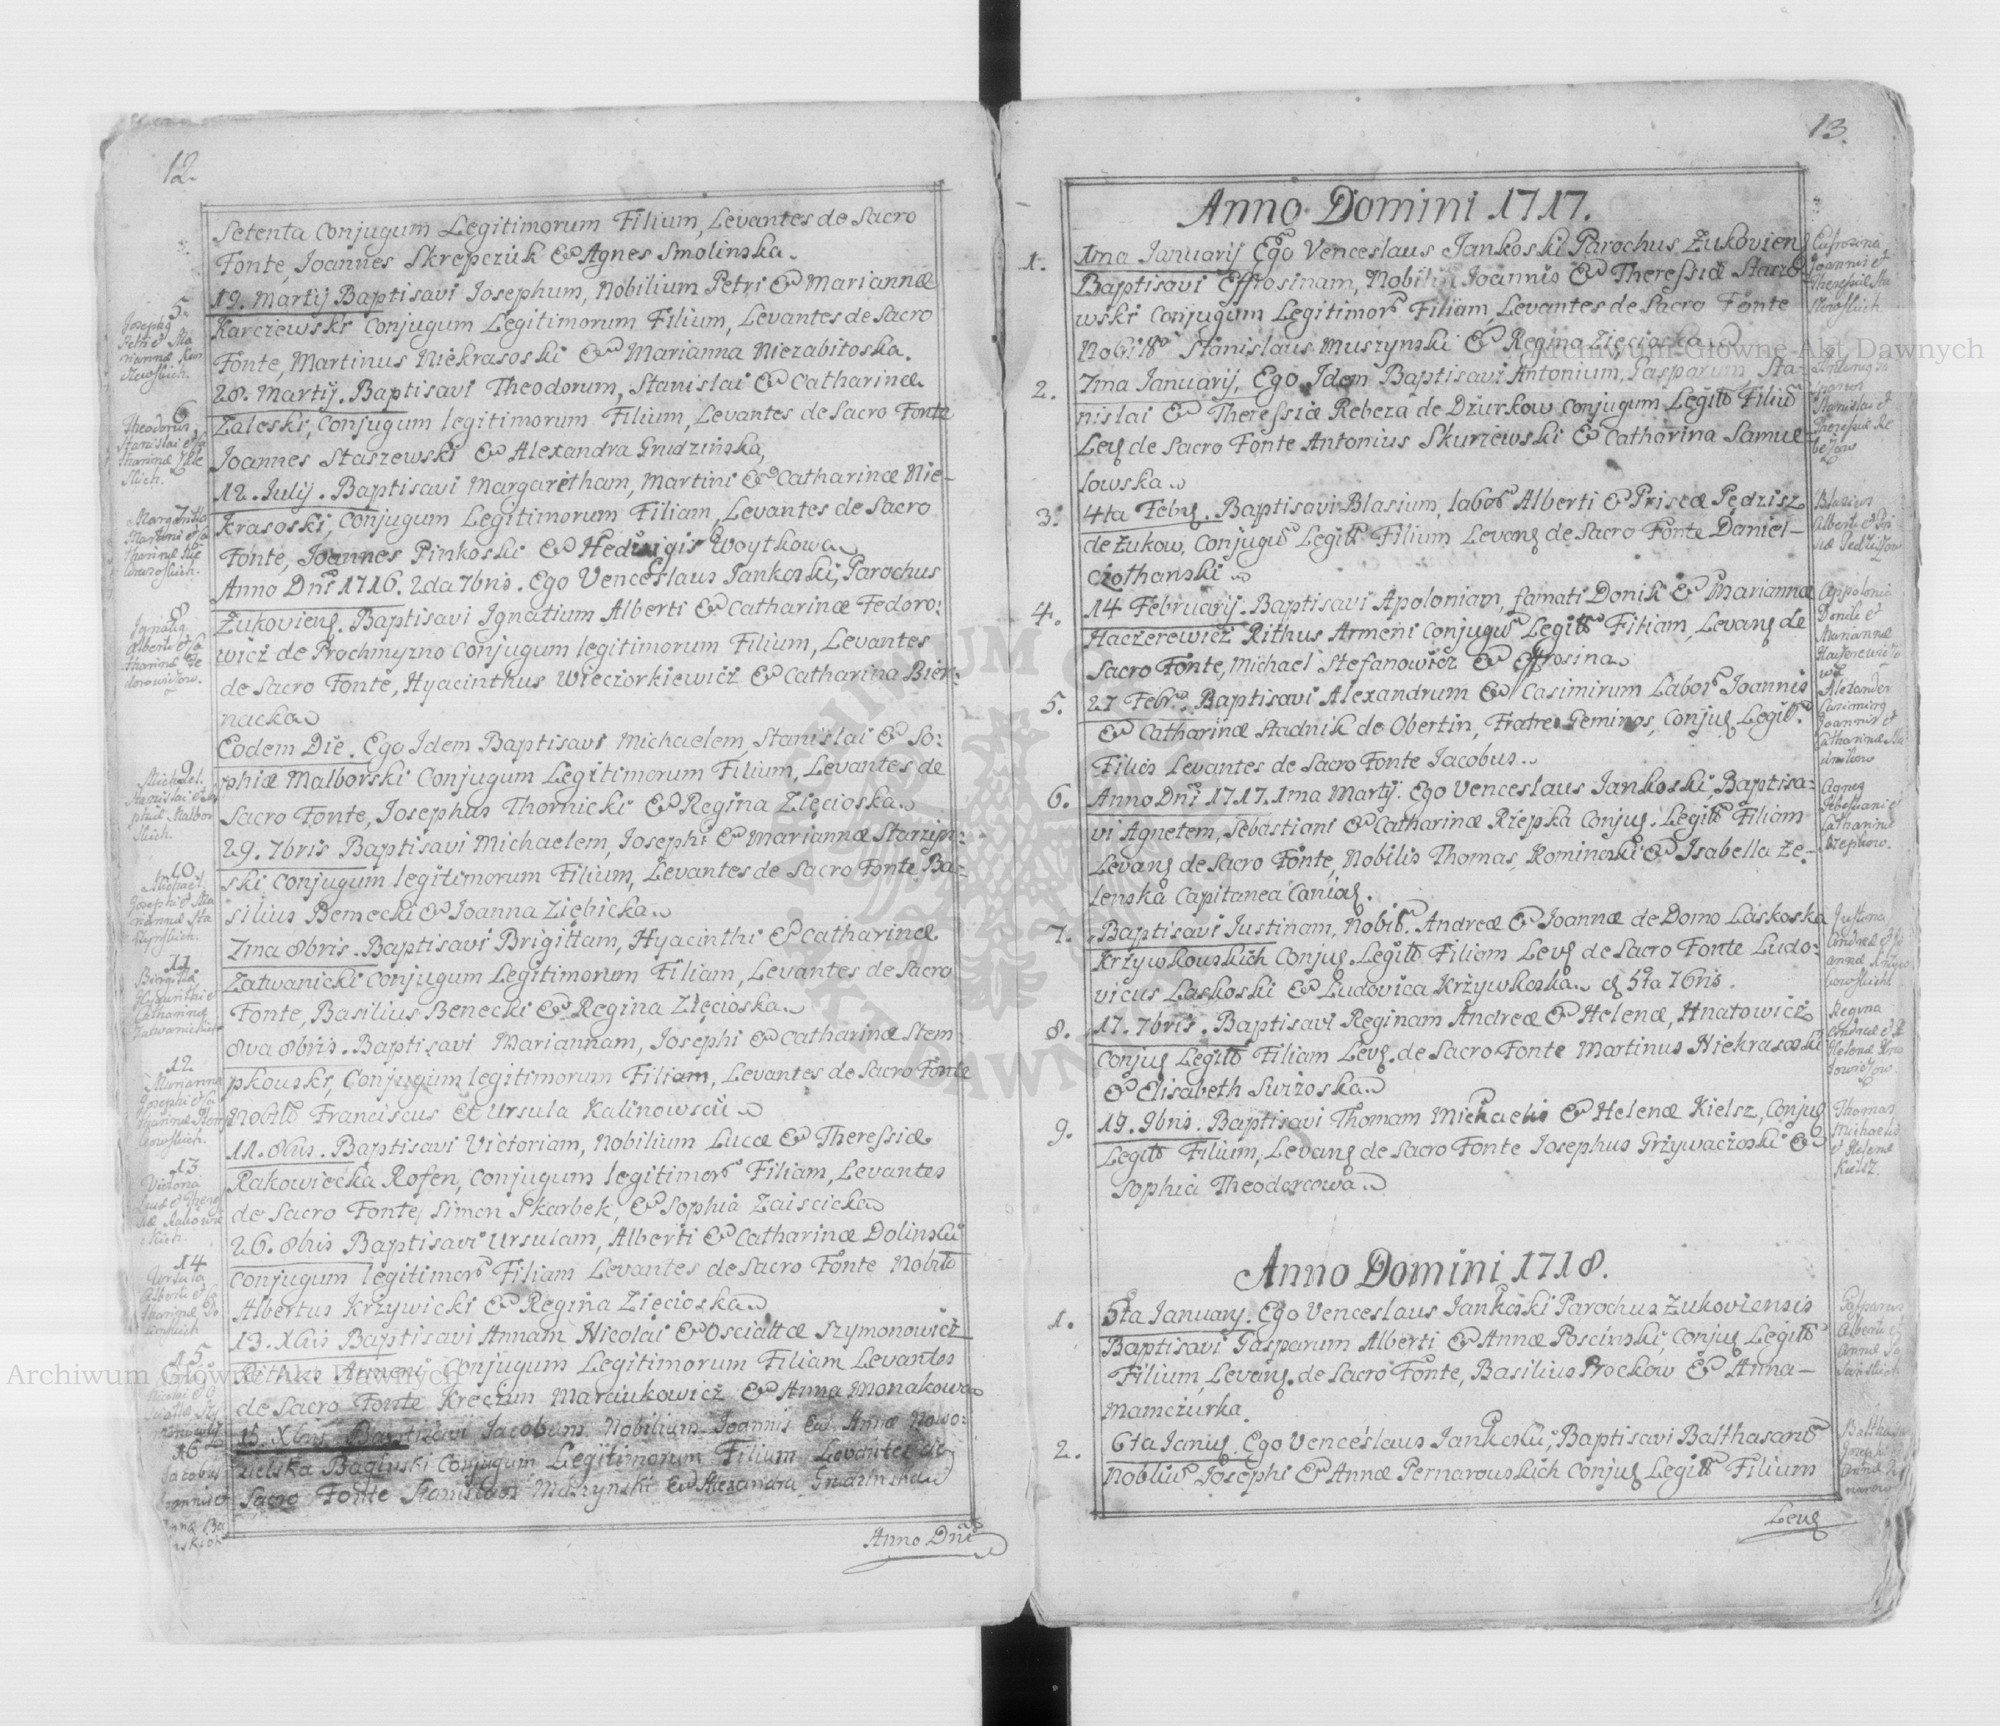 12.
Setenta Conjugum Legitimorum Filium, Levantes de Sacro
Fonte, Joannes Skrepczuk & Agnes Smolinska.
5.
Josephg
Petri et Ma
riannæ Kar
czewskich.
19. Martij Baptisavi Josephum, Nobilium Petri & Mariannæ
Karczewski Conjugum Legitimorum Filium, Levantes de Sacro
Fonte, Martinus Niekrasoski & Marianna Niezabitoska.
6
Theodorus
Stanislai et Ca
tharinæ Zale
skich.
28. Martij. Baptisavi Theodorum, Stanislai & Catharinæ
Zaleski, Conjugum legitimorum Filium, Levantes de Sacro Fonte
Joannes Staszewski & Alexandra Grudzińska,
7
Margaritha
Martini et Ca
tharinæ Nie
12. Julij. Baptisavi Margaritham, Martini & Catharinæ Nie-
krasoski, Conjugum Legitimorum Filiam, Levantes de Sacro
Fonte, Joannes Pinkoski & Hedwigis Woytkowa
8
Ignatig
Alberti et Ca
tharinæ Fe
dorowiczow.
Anno Dni 1716. 2da 7bris. Ego Venceslaus Jankoski, Parochus
Żukovieng. Baptisavi Ignatium Alberti & Catharinæ Fedoro:
wicz de Prochmyzno Conjugum legitimorum Filium, Levantes
de Sacro Fonte, Hyacinthus Wieciorkiewicż & Catharina Bier:
nacka
9
Michael
Stanislai et So
phiæ Malbor
skich.
Eodem Die. Ego Idem Baptisavi Michaelem, Stanislai & So:
phiæ Malborski Conjugum Legitimorum Filium, Levantes de
Sacro Fonte, Josephus Thornicki & Regina Zięcioska
10
Michael
Josephi et Ma
riannæ Sta
29. 7bris Baptisavi Michaelem, Josephi & Mariannæ Starzyn:
ski Conjugum legitimorum Filium, Levantes de Sacro Fonte Ba-
silius Benecki & Joanna Ziębicka
11
Brigitta
Hyacinthi et
Catharinæ
Zatwarnickich
7ma 8bris. Baptisavi Brigittam, Hyacinthi & Catharinæ
Zatwanicki Conjugum Legitimorum Filiam, Levantes de Sacro
Fonte, Basilius Benecki & Regina Zięcioska
12
Marianna
Josephi et Ca
tharinæ Stem
8va 8bris. Baptisavi Mariannam, Josephi & Catharinæ Stem-
pkouski, Conjugum legitimorum Filiam, Levantes de Sacro Fonte
Nobiliũ Franciscus Et Ursula Kalinowscii
13
Victoria
Lucæ et There
siæ Rakowie
ckich.
11. 8bris. Baptisavi Victoriam, Nobilium Lucæ & Theressiæ
Rakowiecka Rofen, Conjugum legitimorũ Filiam, Levantes
de Sacro Fonte, Simon Skarbek, & Sophia Zaiscicka
14
Ursula
Alberti et Ca
tharinæ Do
linskich
26. 8bris Baptisavi Ursulam, Alberti & Catharinæ Dolinski
Conjugum legitimorũ Filiam Levantes de Sacro Fonte Nobiliũ
Albertus Krzywicki & Regina Zięcioska
15
13. Xbris Baptisavi Annam Nicolai & Oscialtæ Szymonowicz
Rithus Armeni Conjugum Legitimorum Filiam Levantes
de Sacro Fonte Kreczun Marcukowicż & Anna Monakowa
16
Jacobus
Joannis et
15. Xbris Baptisavi Jacobum Nobilium Joannis & Annæ Nowo:
sielska Baginski Conjugum Legitimorum Filium Levantes de
Sacro Fonte Stanislaus Muszynski & Alexandra Grudzinska
Anno Dni
13.
Anno Domini 1717.
1.
1ma Januarij Ego Venceslaus Jankoski Parochus Żukovieng
Baptisavi Effrosinam, Nobiliũ Joannis & Theressiæ Stasze-
wski Conjugum Legitimorũ Filiam, Levantes de Sacro Fonte
Nobiliũ Stanislaus Muszynski & Regina Zięcioska
Eufrosina
Joannis et
Theressiæ Sta
szewskich.
2.
7ma Januarij, Ego Idem Baptisavi Antonium, Gasparum Sta-
nislai & Theressiæ Rebeza de Dżurkow Conjugum Legitũ Filiũ
Levg de Sacro Fonte Antonius Skurzewski & Catharina Samue-
lowska
Stanislai et
Theressiæ Re
bezow
3.
4ta Febrg. Baptisavi Blasium, labosũ Alberti & Priscæ Pędzisz
de Żukow, Conjugũ Legitũ Filium Levang de Sacro Fonte Daniel-
Czothanski
Blasius
Alberti et Pri
scæ Pędziszow
4.
14 Februarij. Baptisavi Apoloniam, famati Donik & Mariannæ
Haczerewicz Rithus Armeni Conjugũ Legitũ Filiam, Levang de
Sacro Fonte, Michael Stefanowicz & Effrosina
Appolonia
Donik et
Mariannæ
5.
27 Febr. Baptisavi Alexandrum & Casimirum Labosũ Joannis
& Catharinæ Stadnik de Obertin, Fratres Geminos, Conjug Legitũ
Filios Levantes de Sacro Fonte Jacobus
Alexander
Casimirg
Joannis et
Catharinæ Sta
dnikow
6.
Anno Dni 1717. 1ma Martij. Ego Venceslaus Jankoski, Baptisa-
vi Agnetem, Sebastiani & Catharinæ Rżepka Conjug. Legitũ Filiam
Levang de Sacro Fonte, Nobilis Thomas, Rominoski & Isabella Że-
lenska Capitanea Caniag.
Agnes
Sebastiani et
Catharinæ
Rzepkow.
7.
Baptisavi Justinam, Nobilũ. Andreæ & Joannæ de Domo Laskoska
Krżywkouskich Conjug Legitũ Filiam Levg de Sacro Fonte Ludo-
vicus Laskoski & Ludovica Krżywkoska d 5ta 7bris.
Justina
Andreæ et Jo
annæ Krzyw
kowskich
8.
17. 7bris. Baptisavi Reginam Andreæ & Helenæ, Hnatowicż
Conjug Legitũ Filiam Levg. de Sacro Fonte Martinus Niekrasoski
& Elisabeth Swiżoska
Regina
Andreæ et
Helenæ Hna
towiczow
9.
19. 9bris. Baptisavi Thomam Michaelis & Helenæ Kielsz, Conjug
Legitũ Filium, Levang de Sacro Fonte Josephus Grżywaczoski &
Sophia Theodorcowa
Thomas
Michaelis
et Helenæ
Kielsz.
Anno Domini 1718.
1.
5ta January. Ego Venceslaus Jankoski Parochus Żukoviensis
Baptisavi Gasparum Alberti & Annæ Poscinski, Conjug Legitũ
Filium, Levang. de Sacro Fonte, Basilius Prockow & Anna-
Mamczurka.
Gasparus
Alberti et
Annæ Po
scinskich
2.
6ta Janug. Ego Venceslaus Jankoski, Baptisavi Balthasarũ
Nobliũ Josephi & Annæ Pernarouskich Conjug Legitũ Filium
Balthasar
Josephi et
Levg
Archiwum Główne Akt Dawnych
Archiwum Główne Akt Dawnych
ARCHIWUM GŁÓWNE AKT DAWNYCH